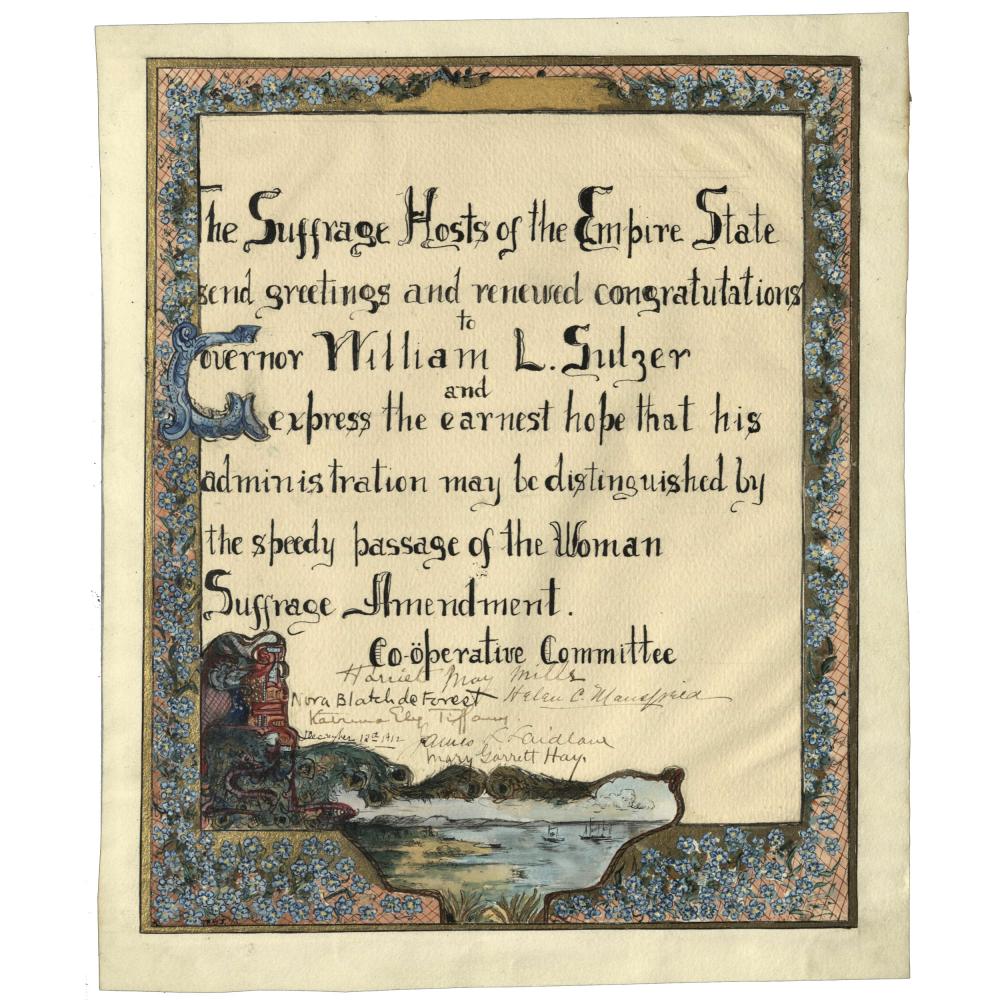 The Suffrage Hosts of the Empire State
send greetings and renewed congratutations
to
Governor William L. Sulzer
and
express the earnest hope that his
administration may be distinguished by
the speedy passage of the Woman
Suffrage Amendment.
Co-öperative Committee
Harriet May Mills
Nora Blatch de Forest Helen C. Mansfield
Katrina Ely Tiffany
December 12th 1912 James L Laidlaw
Mary Garrett Hay.